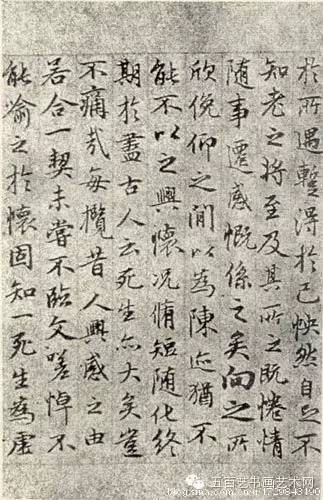 於所遇蹔得於己怏然自足不
知老之將至及其所之既惓情
隨事遷感慨係之矣向之所
欣俛仰之間以為陳迹猶不
能不以之興懷況脩短隨化終
期於盡古人云死生亦大矣豈
不痛哉每攬昔人興感之由
若合一契未嘗不臨文嗟悼不
能喻之於懷固知一死生為虛
五百艺书画艺术网
blog.sina.com.cn/u/1729843190